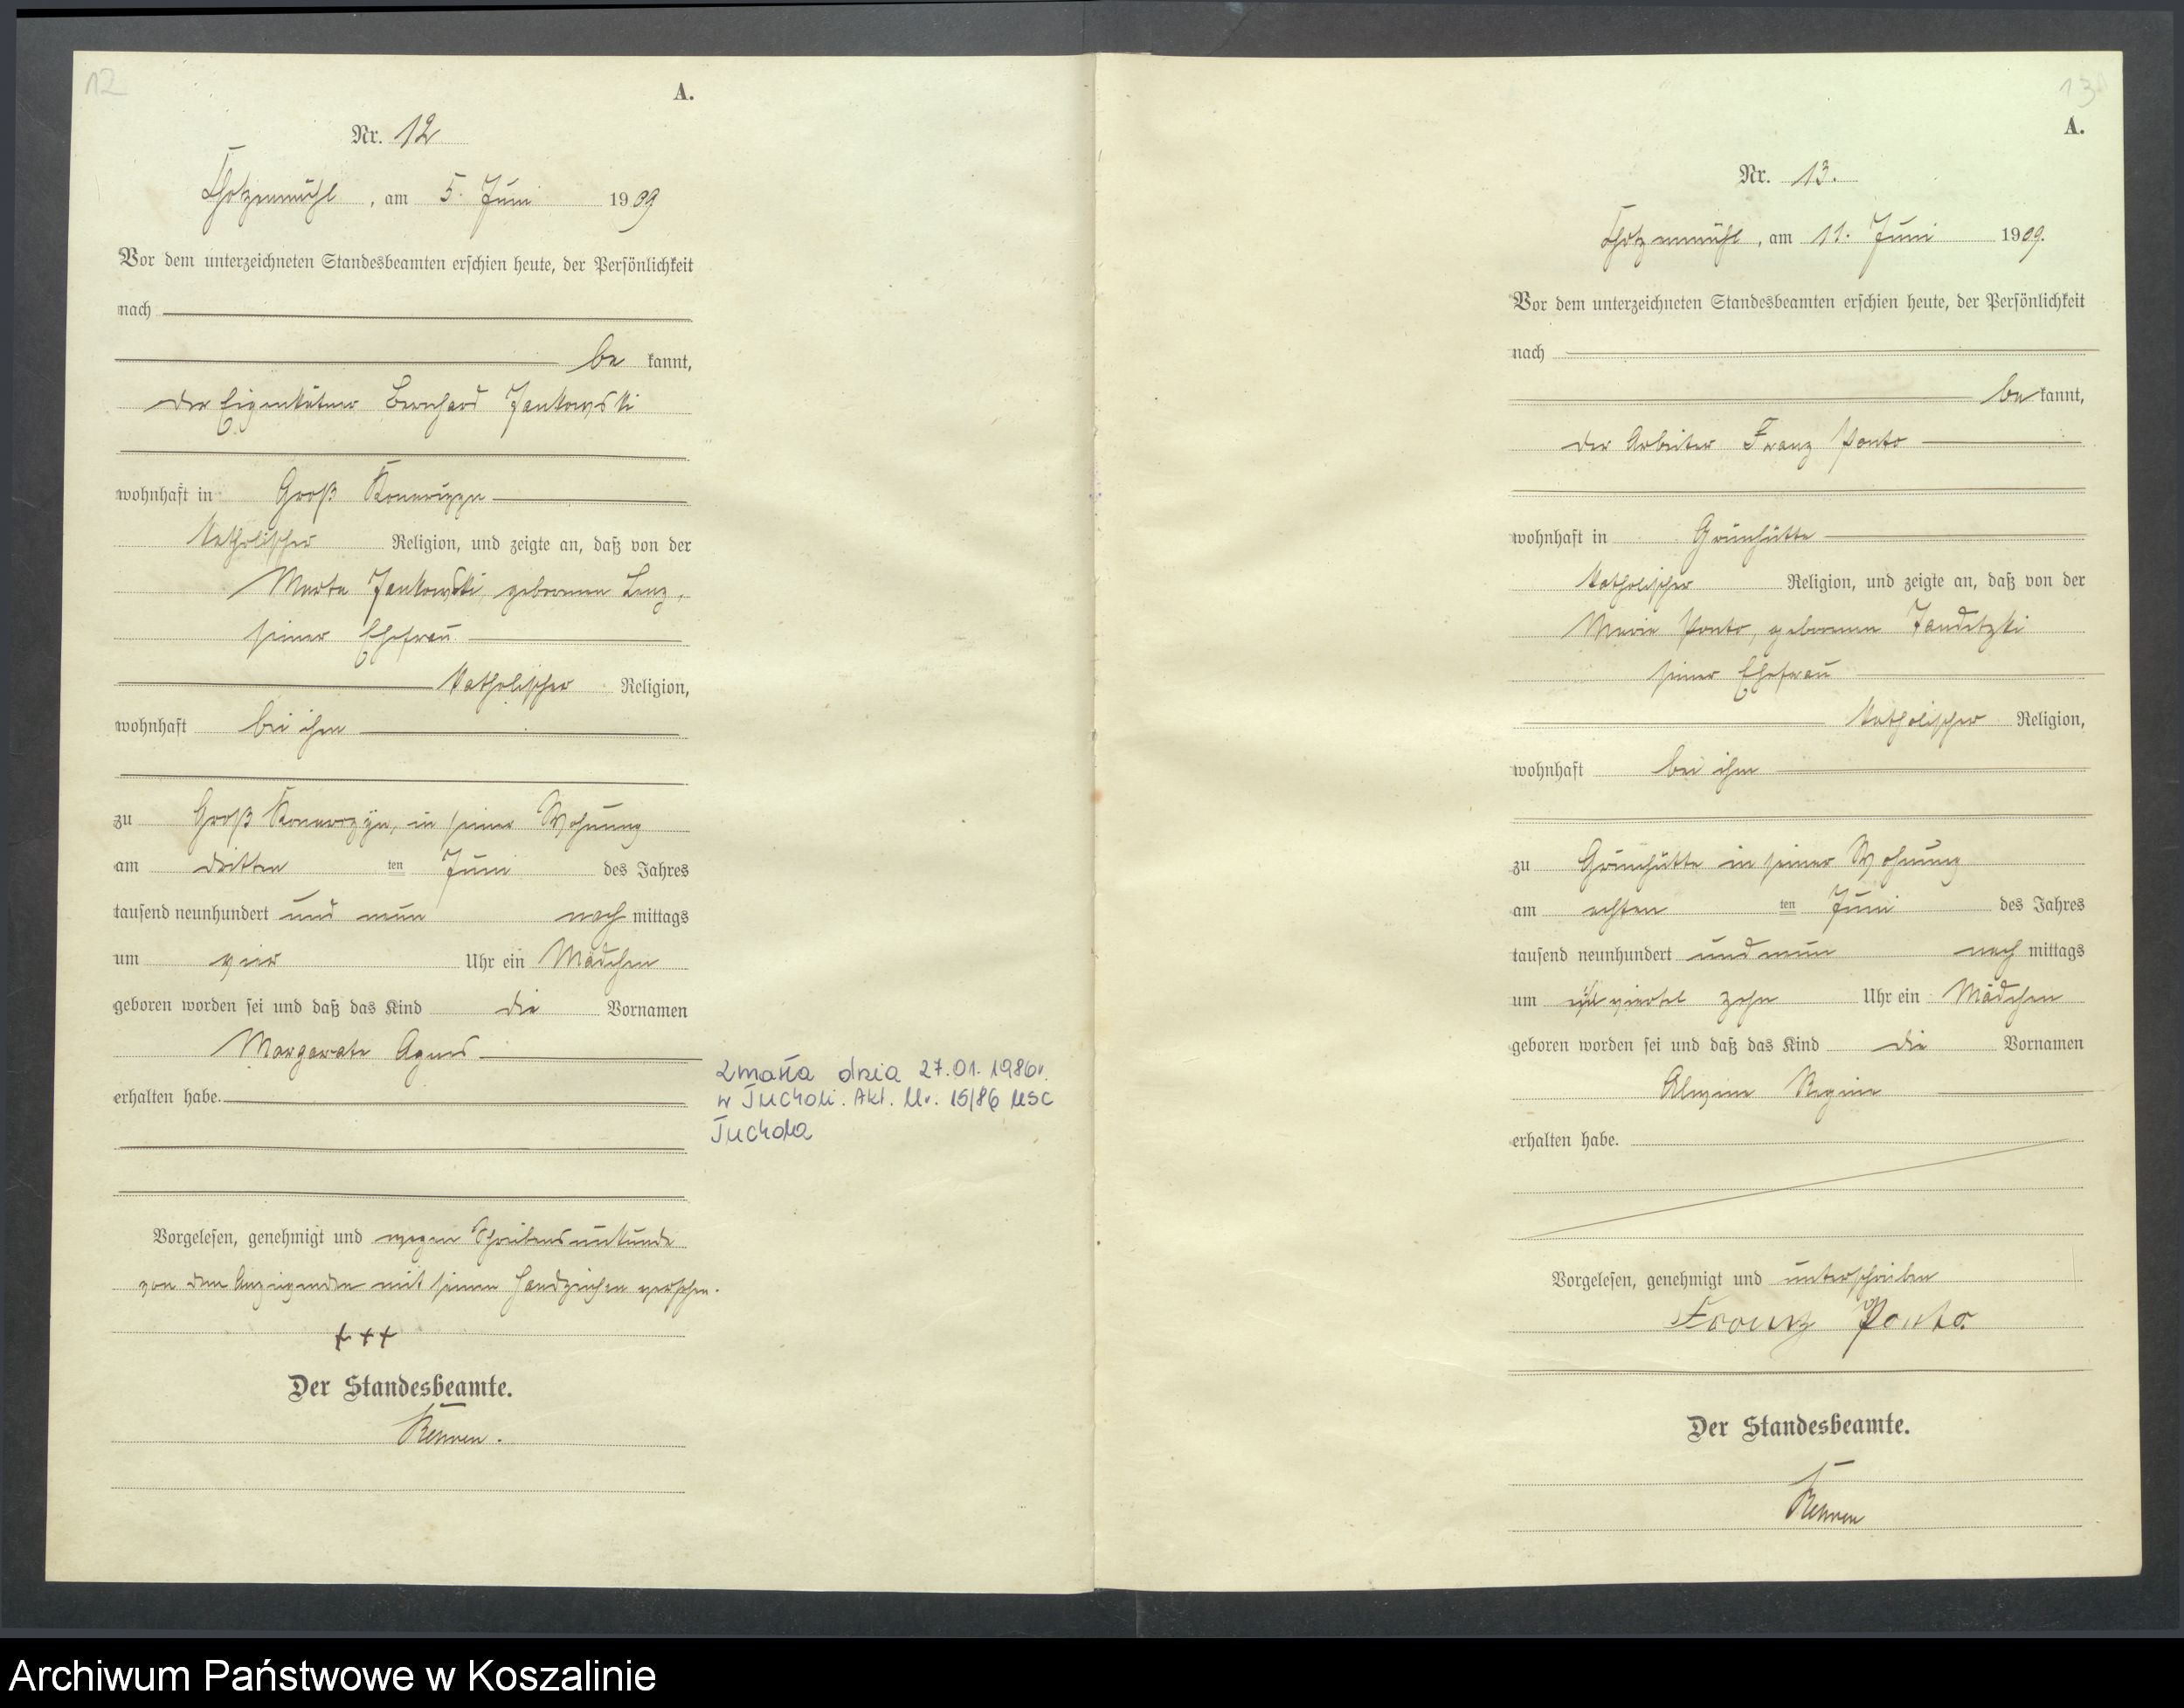 12
A.
Nr. 12
Chotzenmühl, am 5. Juni 1909
Vor dem unterzeichneten Standesbeamten erschien heute, der Persönlichkeit
nach
be kannt,
der Eigenkätner Bernhard Jankowski
wohnhaft in Groß Konarzyn
katholischer Religion, und zeigte an, daß von der
Marta Jankowski, geborenen Lenz,
seiner Ehefrau
katholischer Religion,
wohnhaft bei ihm
zu Groß Konarzyn, in seiner Wohnung
am dritten ten Juni des Jahres
tausend neunhundert und neun nach mittags
um vier Uhr ein Mädchen
geboren worden sei und daß das Kind die Vornamen
Margarete Agnes
erhalten habe.
Vorgelesen, genehmigt und wegen Schreibensunkunde
von dem Anzeigenden mit seinen Handzeichen versehen.
+++
Der Standesbeamte.
zmarła dnia 27.01.1986r.
w Tucholi. Akt. Nr. 15/86 USC
Tuchola
13
A.
Nr. 13.
Chotzenmühl, am 11. Juni 1909.
Vor dem unterzeichneten Standesbeamten erschien heute, der Persönlichkeit
nach
be kannt,
der Arbeiter Franz Ponto
wohnhaft in Grünhütte
katholischer Religion, und zeigte an, daß von der
Marie Ponto, geborenen
seiner Ehefrau
katholischer Religion,
wohnhaft bei ihm
zu Grünhütte in seiner Wohnung
am achten ten Juni des Jahres
tausend neunhundert und neun nach mittags
um viertel zehn Uhr ein Mädchen
geboren worden sei und daß das Kind die Vornamen
erhalten habe.
Vorgelesen, genehmigt und unterschrieben
Franz Ponto
Der Standesbeamte.
Archiwum Państwowe w Koszalinie